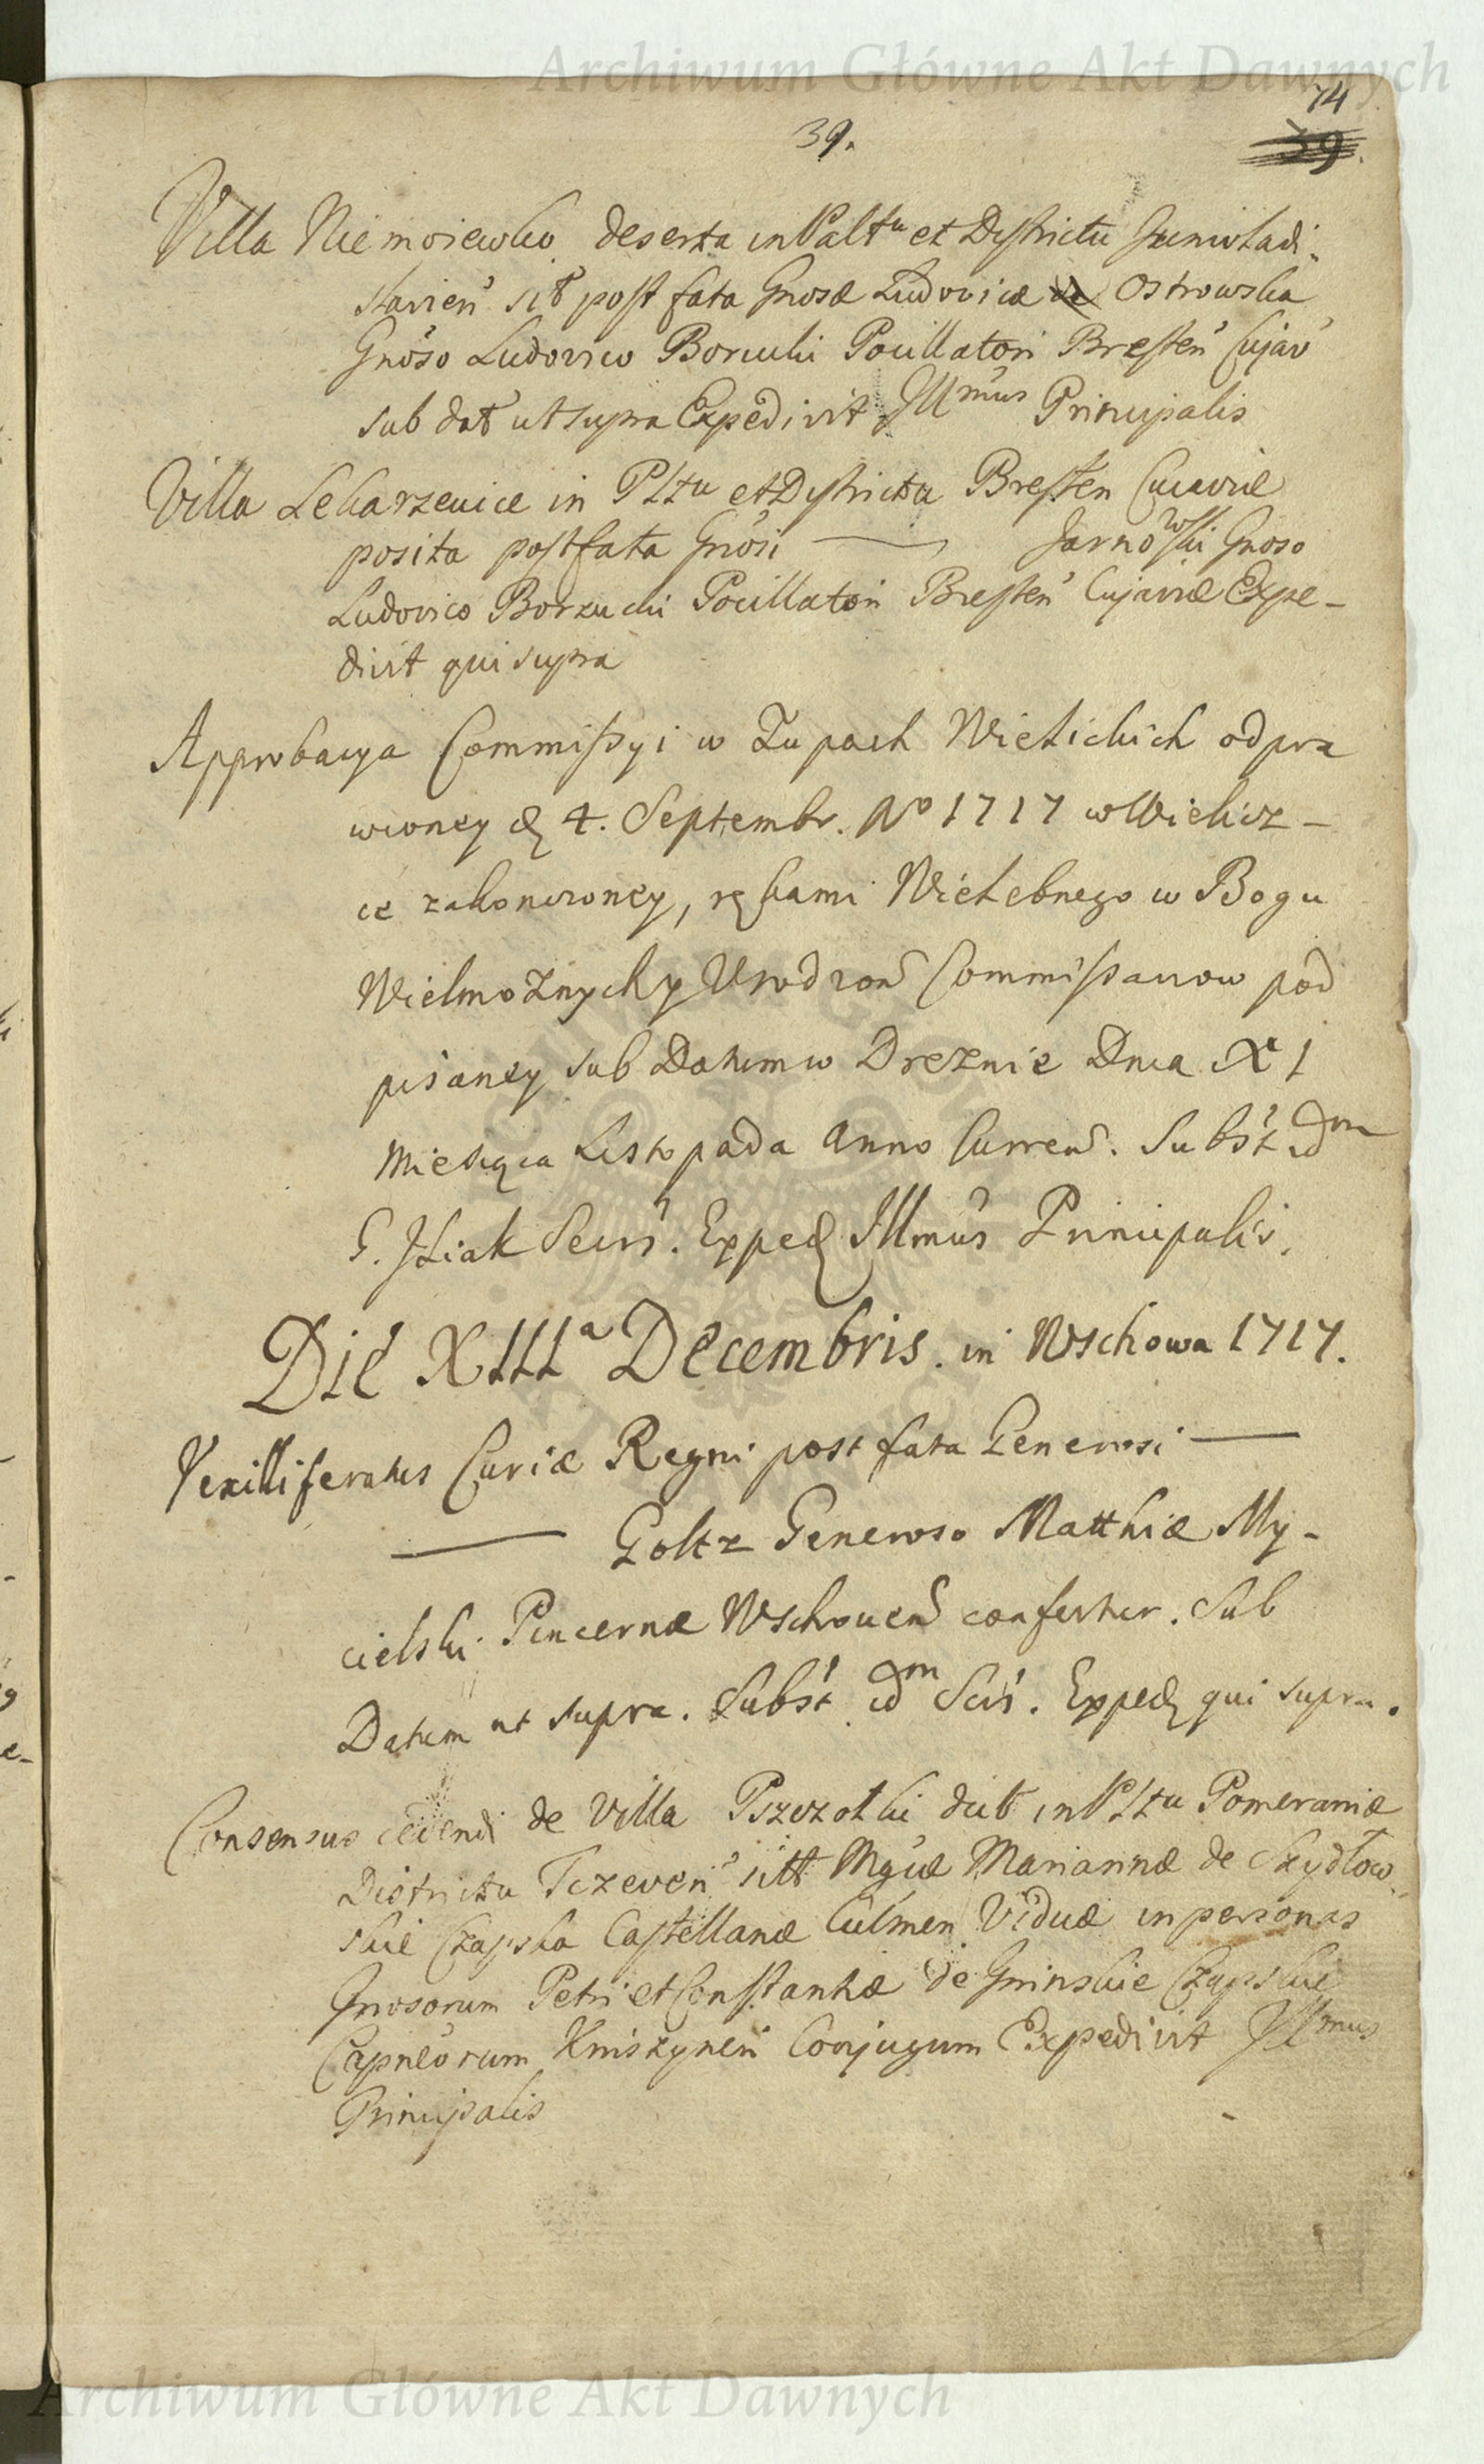 Archiwum Główne Akt Dawnych
74
39.
39.
Villa Niemoiewko deserta in Palt͠u et Districtu Juniwladi-
slavien͠ sit͠ post fata Gnosæ Ludovicæ de Ostrowska
Gnoso Ludovico Borucki Pocillatori Bresten͠ Cujav͠
sub dat͠ ut supra Expedivit Illmus Principalis
Villa Lekarzewice in Pltu et Districtu Bresten Cuiaviæ
posita post fata Gnosi — Jarnowski Gnoso
Ludovico Borzucki Pocillatori Bresten͠ Cujaviæ Expe-
divit qui supra
Approbacya Commissyi w Zupach Wielickich odpra
wioney d. 4. Septembr. Ao 1717 w Wielicz-
ce zakonczoney, rękami Wielebnego w Bogu
Wielmożnych y Urodzon͠ Commissarzow pod
pisaney sub Datum w Dreznie Dnia XI
Miesiąca Listopada Anno Curren͠. Subst idm
G. Isiak Secrs. Exped Illmus Principalis.
Die XIIIa Decembris. in Wschowa 1717.
Vexilliferatus Curiæ Regni post fata Generosi —
— Goltz Generoso Matthiæ My-
cielski Pincernæ Wschoven͠ confertur. Sub
Datum ut supra. Subst idm Scrs. Exped qui supra.
Consensus cedendi de Villa Pszczolki dict͠ in Pltu Pomeraniæ
Districtu Tczeven͠ sitt͠ Mgcæ Mariannæ de Szydlow-
skie Czapska Castellanæ Culmen Viduæ in personas
Gnosorum Petri et Constantiæ de Gninskie Czapskie
Capneorum Kniszynen͠ Conjugum Expedivit Illmus
Principalis
Archiwum Główne Akt Dawnych